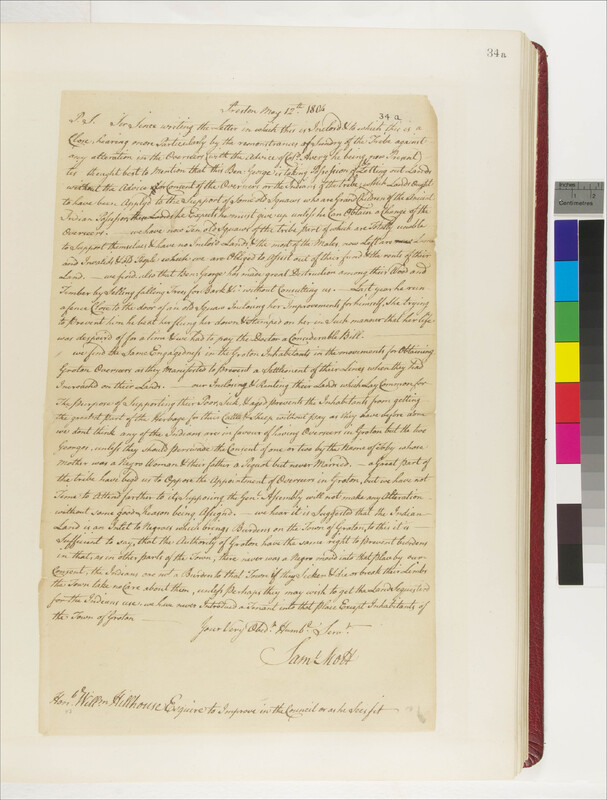 34a
Preston May 12th. 1804
34 a
P.S. Sir Since writing the letter in which this is Inclosed & to which this is a
Close, hearing more Particularly by the remonstrances of Sundry of the Tribe against
any alteration in the Overseers (with the Advice of Colo. Avery he being now Present)
tis thought best to Mention that this Ben George is taking Possession of & Letting out Lands
without the Advice or Consent of the Overseers or the Indians of the Tribe; which Lands Ought
to have been Applyd to the Support of Some old Squaws who are Grand Children of the Ancient
Indian Possessor Lands he Expects he must give up unless he Can Obtain a Change of the
Overseers. — we have now Ten old Squaws of the Tribe part of which are Totally unable
to Support themselves & have no Inclosd Lands, & the most of the Males, now Left are
and Invalids & Old People which we are Obliged to Assist out of their fund & the rents of their
Land. — we find also that Ben George has made great Destruction among their Wood and
Timber by Selling felling Trees for Bark &c. without Consulting us. — Last year he run
a fence Close to the door of an old Squaw Inclosing her Improvements for himself. She trying
to prevent him he beat her flung her down & Stamped on her in Such manner that her life
was despaired of for a time & we had to pay the Doctor a Considerable Bill —
we find the Same Engagedness in the Groton Inhabitants in the movements for Obtaining
Groton Overseers as they manifested to prevent a Settlement of their Lines when they had
Incroached on their Lands. — our Inclosing & Renting their Lands which Lay Common, for
the Purpose of Supporting their Poor, Sick, & aged prevents the Inhabitants from getting
the greatest part of the Herbage for their Cattle & Sheep without pay as they have before done
we dont think any of the Indians are in favour of having Overseers in Groton but the two
Georges, unless they should perswade the Consent of one or two by the Name of Toby whose
mother was a Negro Woman & their father a Pequot but never Married. — a Great part of
the tribe have begd us to Oppose the Appointment of Overseers in Groton, but we have not
Time to Attend farther to it Supposing the Genl. Assembly will not make any Alteration
without some good Reason being Assigned. — we hear it is Suggested that the Indian
Land is an Inlet to Negroes which brings Burdens on the Town of Groton, to this it is
Sufficient to Say, that the Authority of Groton have the same right to prevent burdens
in that, as in other parts of the Town, there never was a Negro moved into that place by our
Consent, the Indians are not a Burden to that Town if they Sicken & die or break their Limbs
the Town take no Care about them, unless perhaps they may wish to get the Lands Sequesterd
for the Indians use. we have never Introduced a servant into that Place Except Inhabitants of
the Town of Groton —
Your Very Obedt. Humbl. Servt.
Saml. Mott
Honble. Willm. Hillhouse Esquire to Improve in the Council or as he Sees fit